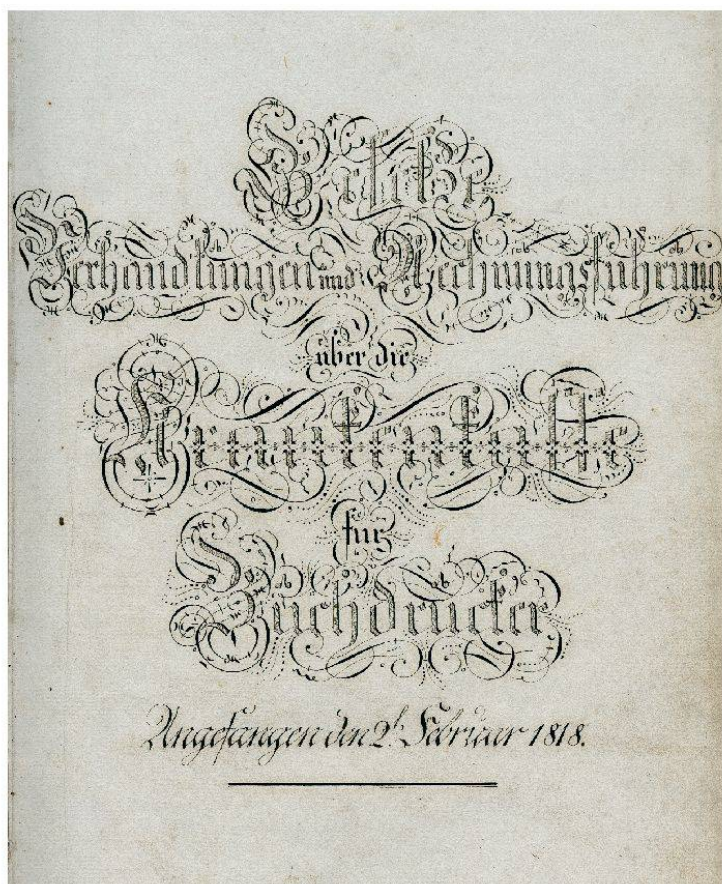 Verhandlungen und Rechnungsführung
über die
Krankencasse
für
Buchdrucker
Angefangen den 2t. Februar 1818.